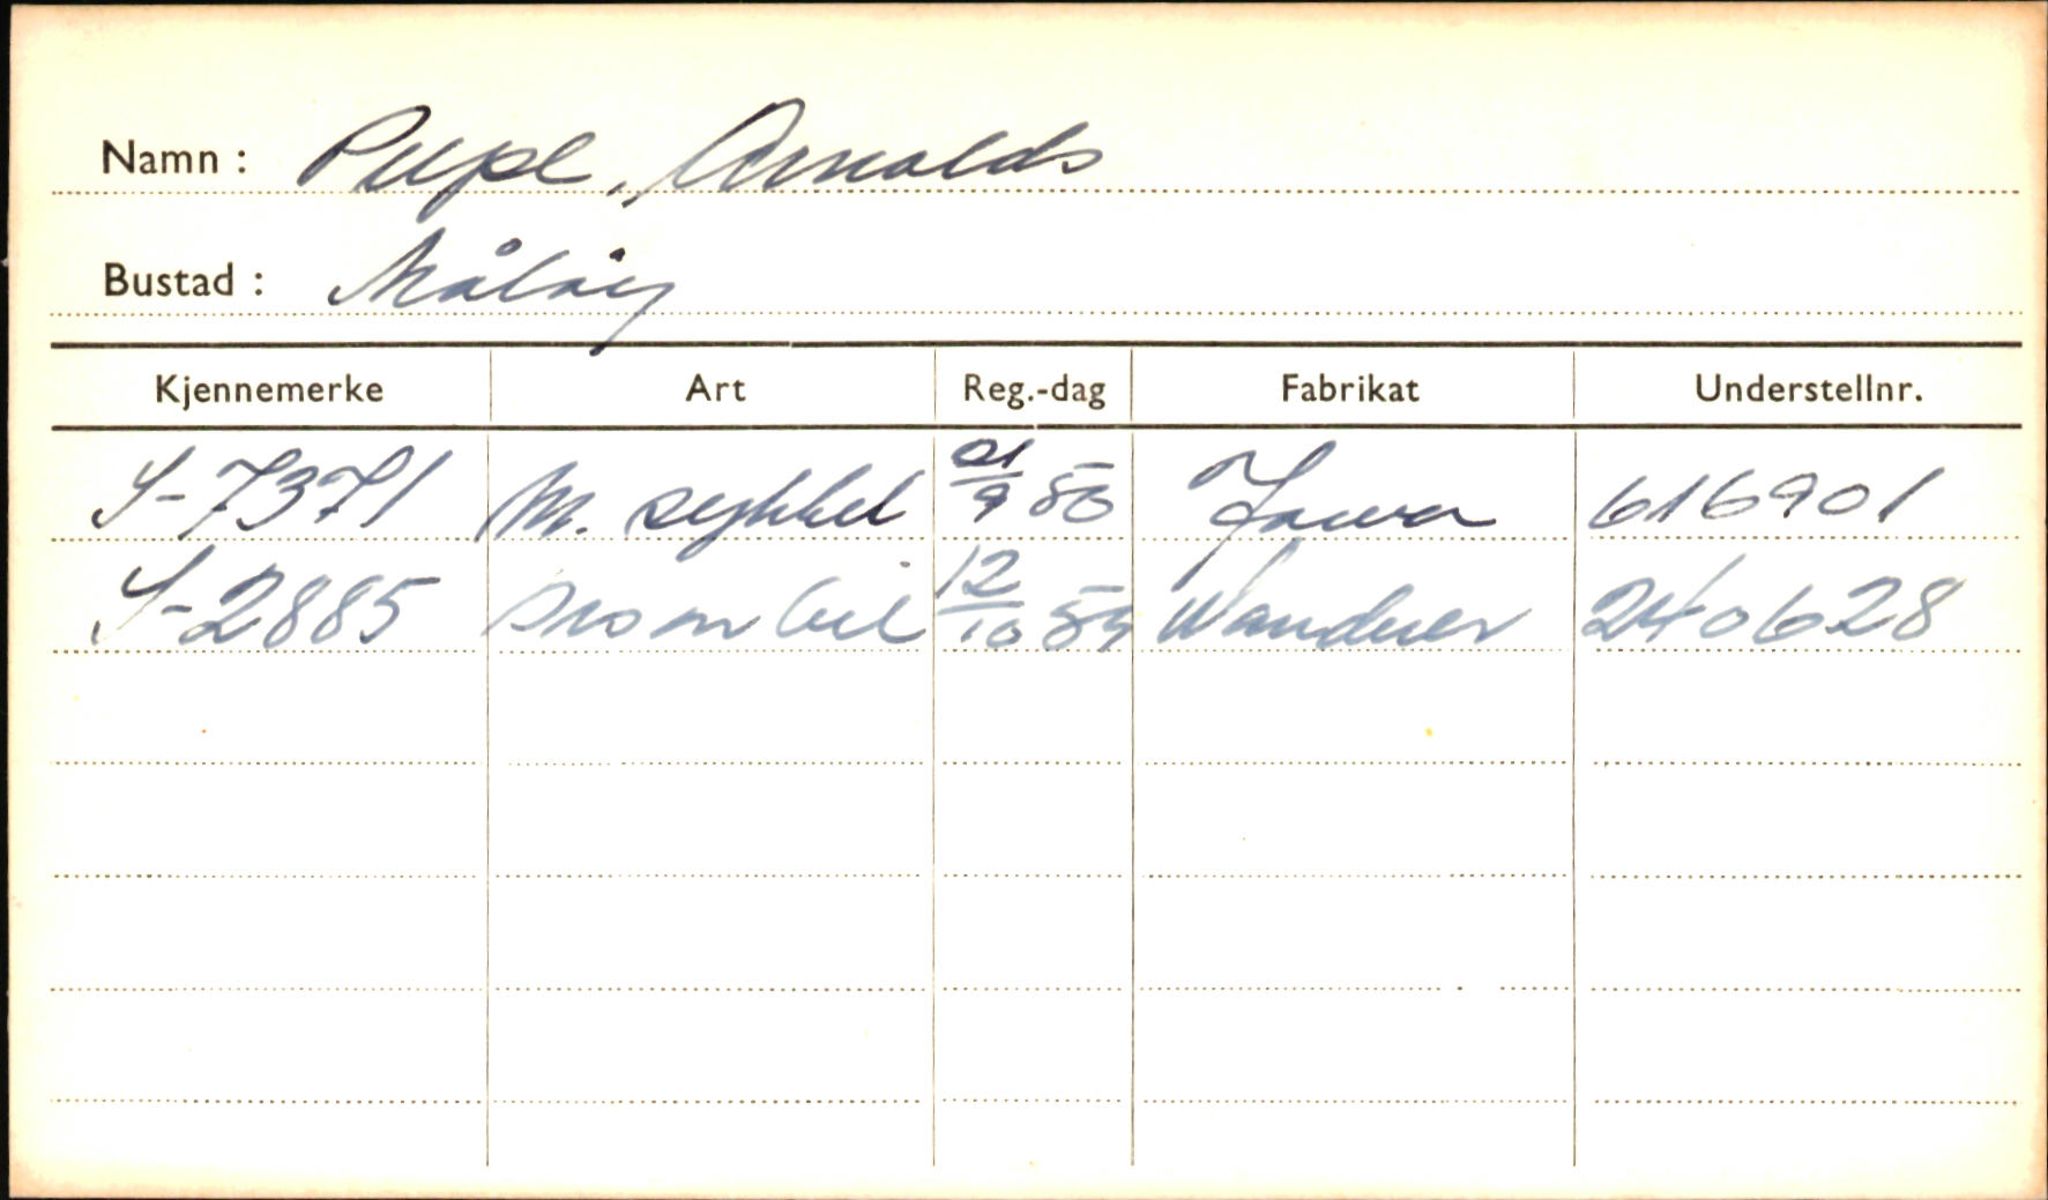 Namn : Pupe, Arnolds
Bustad : Måløy
Kjennemerke Art Reg.-dag Fabrikat Understellnr.
S-7371 M. sykkel 21/9 50 Jawa 616901
S-2885 Personbil 12/10 54 Wanderer 240628